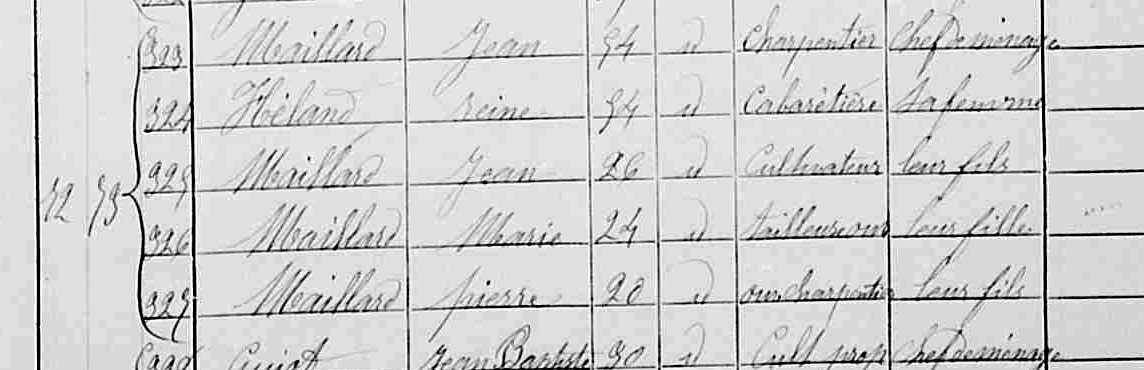 323 Maillard Jean 54 id Charpentier Chef de ménage
324 Héland reine 54 id Cabarétière sa femme
325 Maillard Jean 26 id Cultivateur leur fils
72 73 326 Maillard Marie 24 id tailleuse ouv leur fille
327 Maillard pierre 20 id ouv charpentier leur fils
Jean Baptiste 30 id Cult prop Chef de ménage